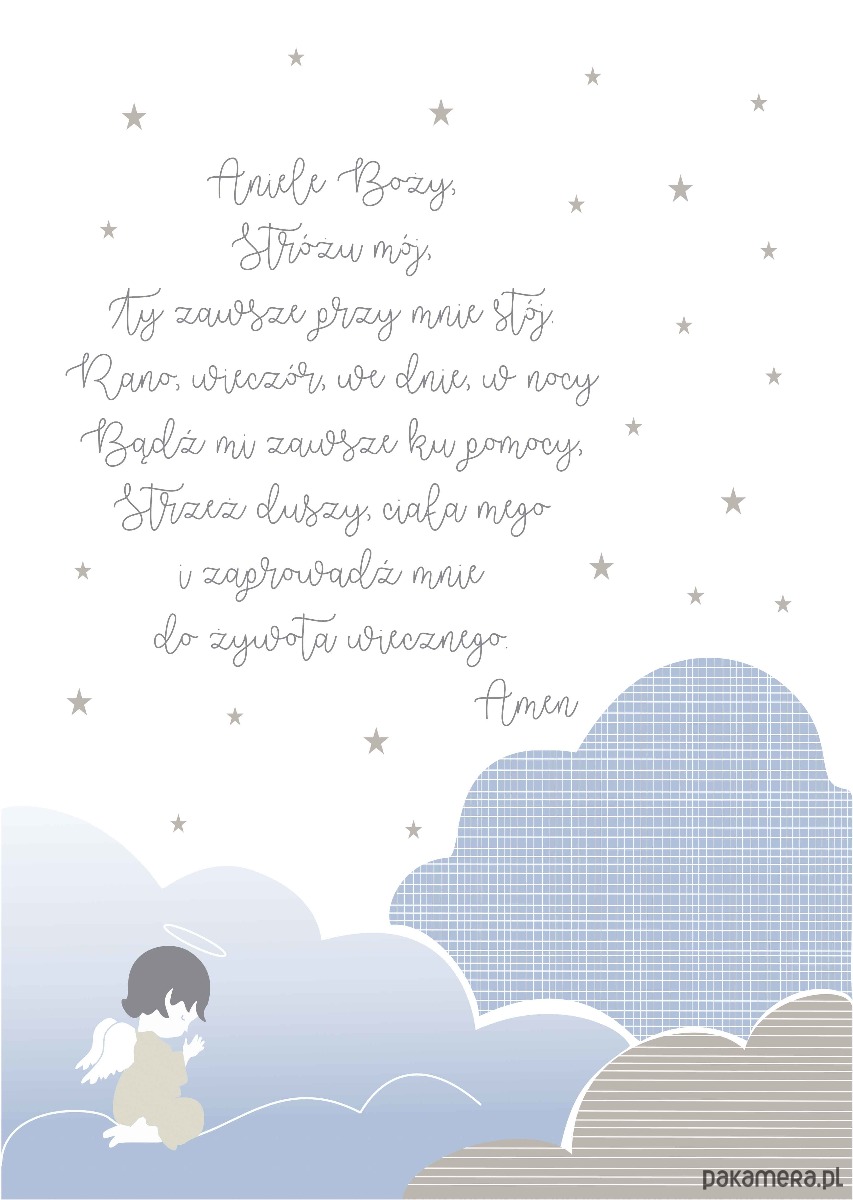 Aniele Boży,
Stróżu mój,
Ty zawsze przy mnie stój.
Rano, wieczór, we dnie, w nocy
Bądź mi zawsze ku pomocy,
Strzeż duszy, ciała mego
i zaprowadź mnie
do żywota wiecznego.
Amen
pakamera.pl